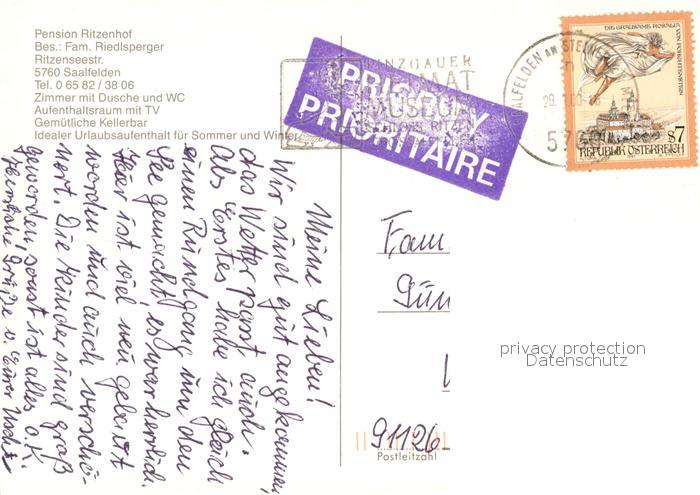 Pension Ritzenhof
Bes.: Fam. Riedlsperger
Ritzenseestr.
5760 Saalfelden
Tel. 0 65 82 / 38 06
Zimmer mit Dusche und WC
Aufenthaltsraum mit TV
Gemütliche Kellerbar
Idealer Urlaubsaufenthalt für Sommer und Winter
PRIORITY
PRIORITAIRE
PINZGAUER
HEIMAT
MUSEUM
RITZEN
SAALFELDEN AM STEINERNEN
29.
5760
DIE GRAUSAME ROSALIA
VON FORCHTENSTEIN
s7
REPUBLIK ÖSTERREICH
Meine Lieben!
Wir sind gut angekommen,
das Wetter passt auch.
Als Erstes habe ich gleich
einen Rundgang um den
See gemacht, es war herrlich.
Hier ist viel neu gebaut
worden und auch verschö-
nert. Die Kinder sind groß
geworden, sonst ist alles o.K.
Herzliche Grüße v. Eurer
Fam.
Gün
91126
Postleitzahl
privacy protection
Datenschutz